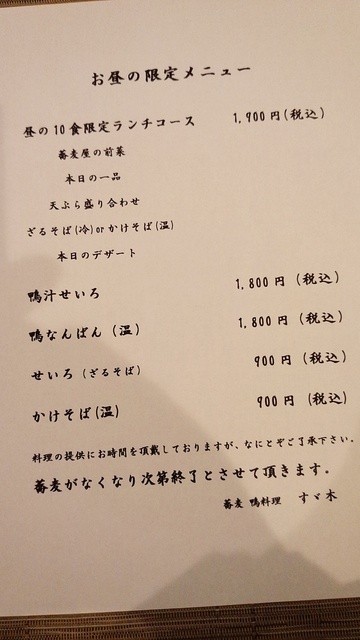 お昼の限定メニュー
昼の10食限定ランチコース 1,900円(税込)
蕎麦屋の前菜
本日の一品
天ぷら盛り合わせ
ざるそば(冷)orかけそば(温)
本日のデザート
鴨汁せいろ 1,800円 (税込)
鴨なんばん (温) 1,800円 (税込)
せいろ (ざるそば) 900円 (税込)
かけそば(温) 900円 (税込)
料理の提供にお時間を頂戴しておりますが、なにとぞご了承下さい。
蕎麦がなくなり次第終了とさせて頂きます。
蕎麦 鴨料理 すゞ木